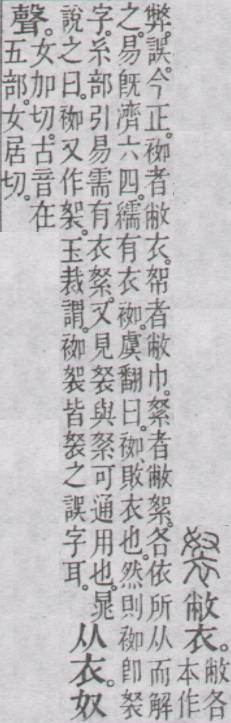 敝衣。敝各
本作
弊。誤。今正。袽者敝衣。帤者敝巾。絮者敝絮。各依所从而解
之。易旣濟六四。繻有衣袽。虞翻曰。袽、敗衣也。然則袽卽
字。糸部引易需有衣絮。又見與絮可通用也。晁
說之曰。袽又作袈。玉裁謂。袽袈皆之誤字耳。从衣奴
聲。女加切。古音在
五部。女居切。